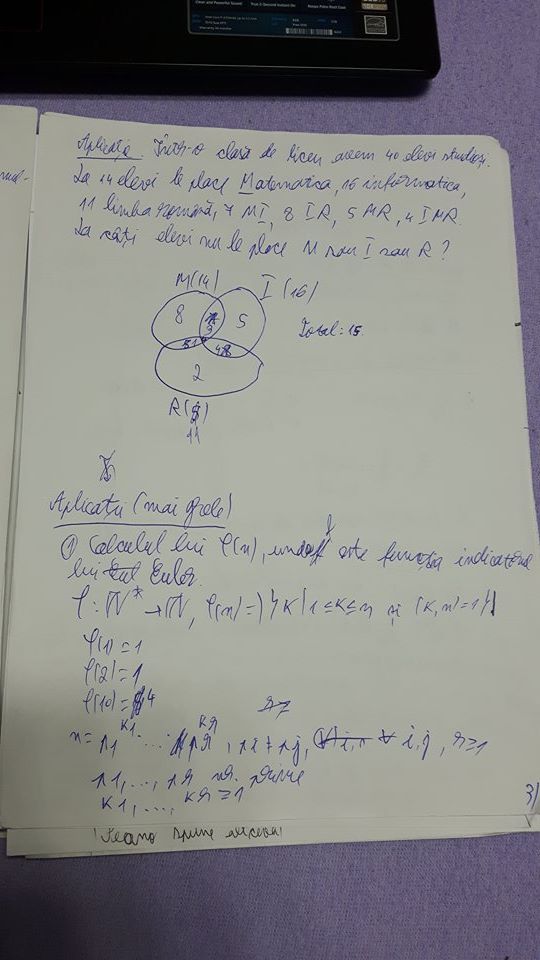 Aplicație. Într-o clasă de liceu avem 40 elevi studioși.
La 14 elevi le place Matematica, 16 informatica,
11 limba română, 7 MI, 8 IR, 5 MR, 4 IMR.
La câți elevi nu le place M sau I sau R?
M(14)
I (16)
8
3
5
Total: 15
1
4
2
R(
11
Aplicații (mai grele)
① Calculul lui φ(n), unde φ este funcția indicatorul
lui Euler.
φ: ℕ* → ℕ, φ(n) = |{k | 1 ≤ k ≤ n și (k, n) = 1}|
φ(1) = 1
φ(2) = 1
φ(10) = 4
n = p1^k1 ... pr^kr, pi ≠ pj, ∀ i, j, r ≥ 1
p1, ..., pr nr. prime
k1, ..., kr ≥ 1
3)
Peano spune